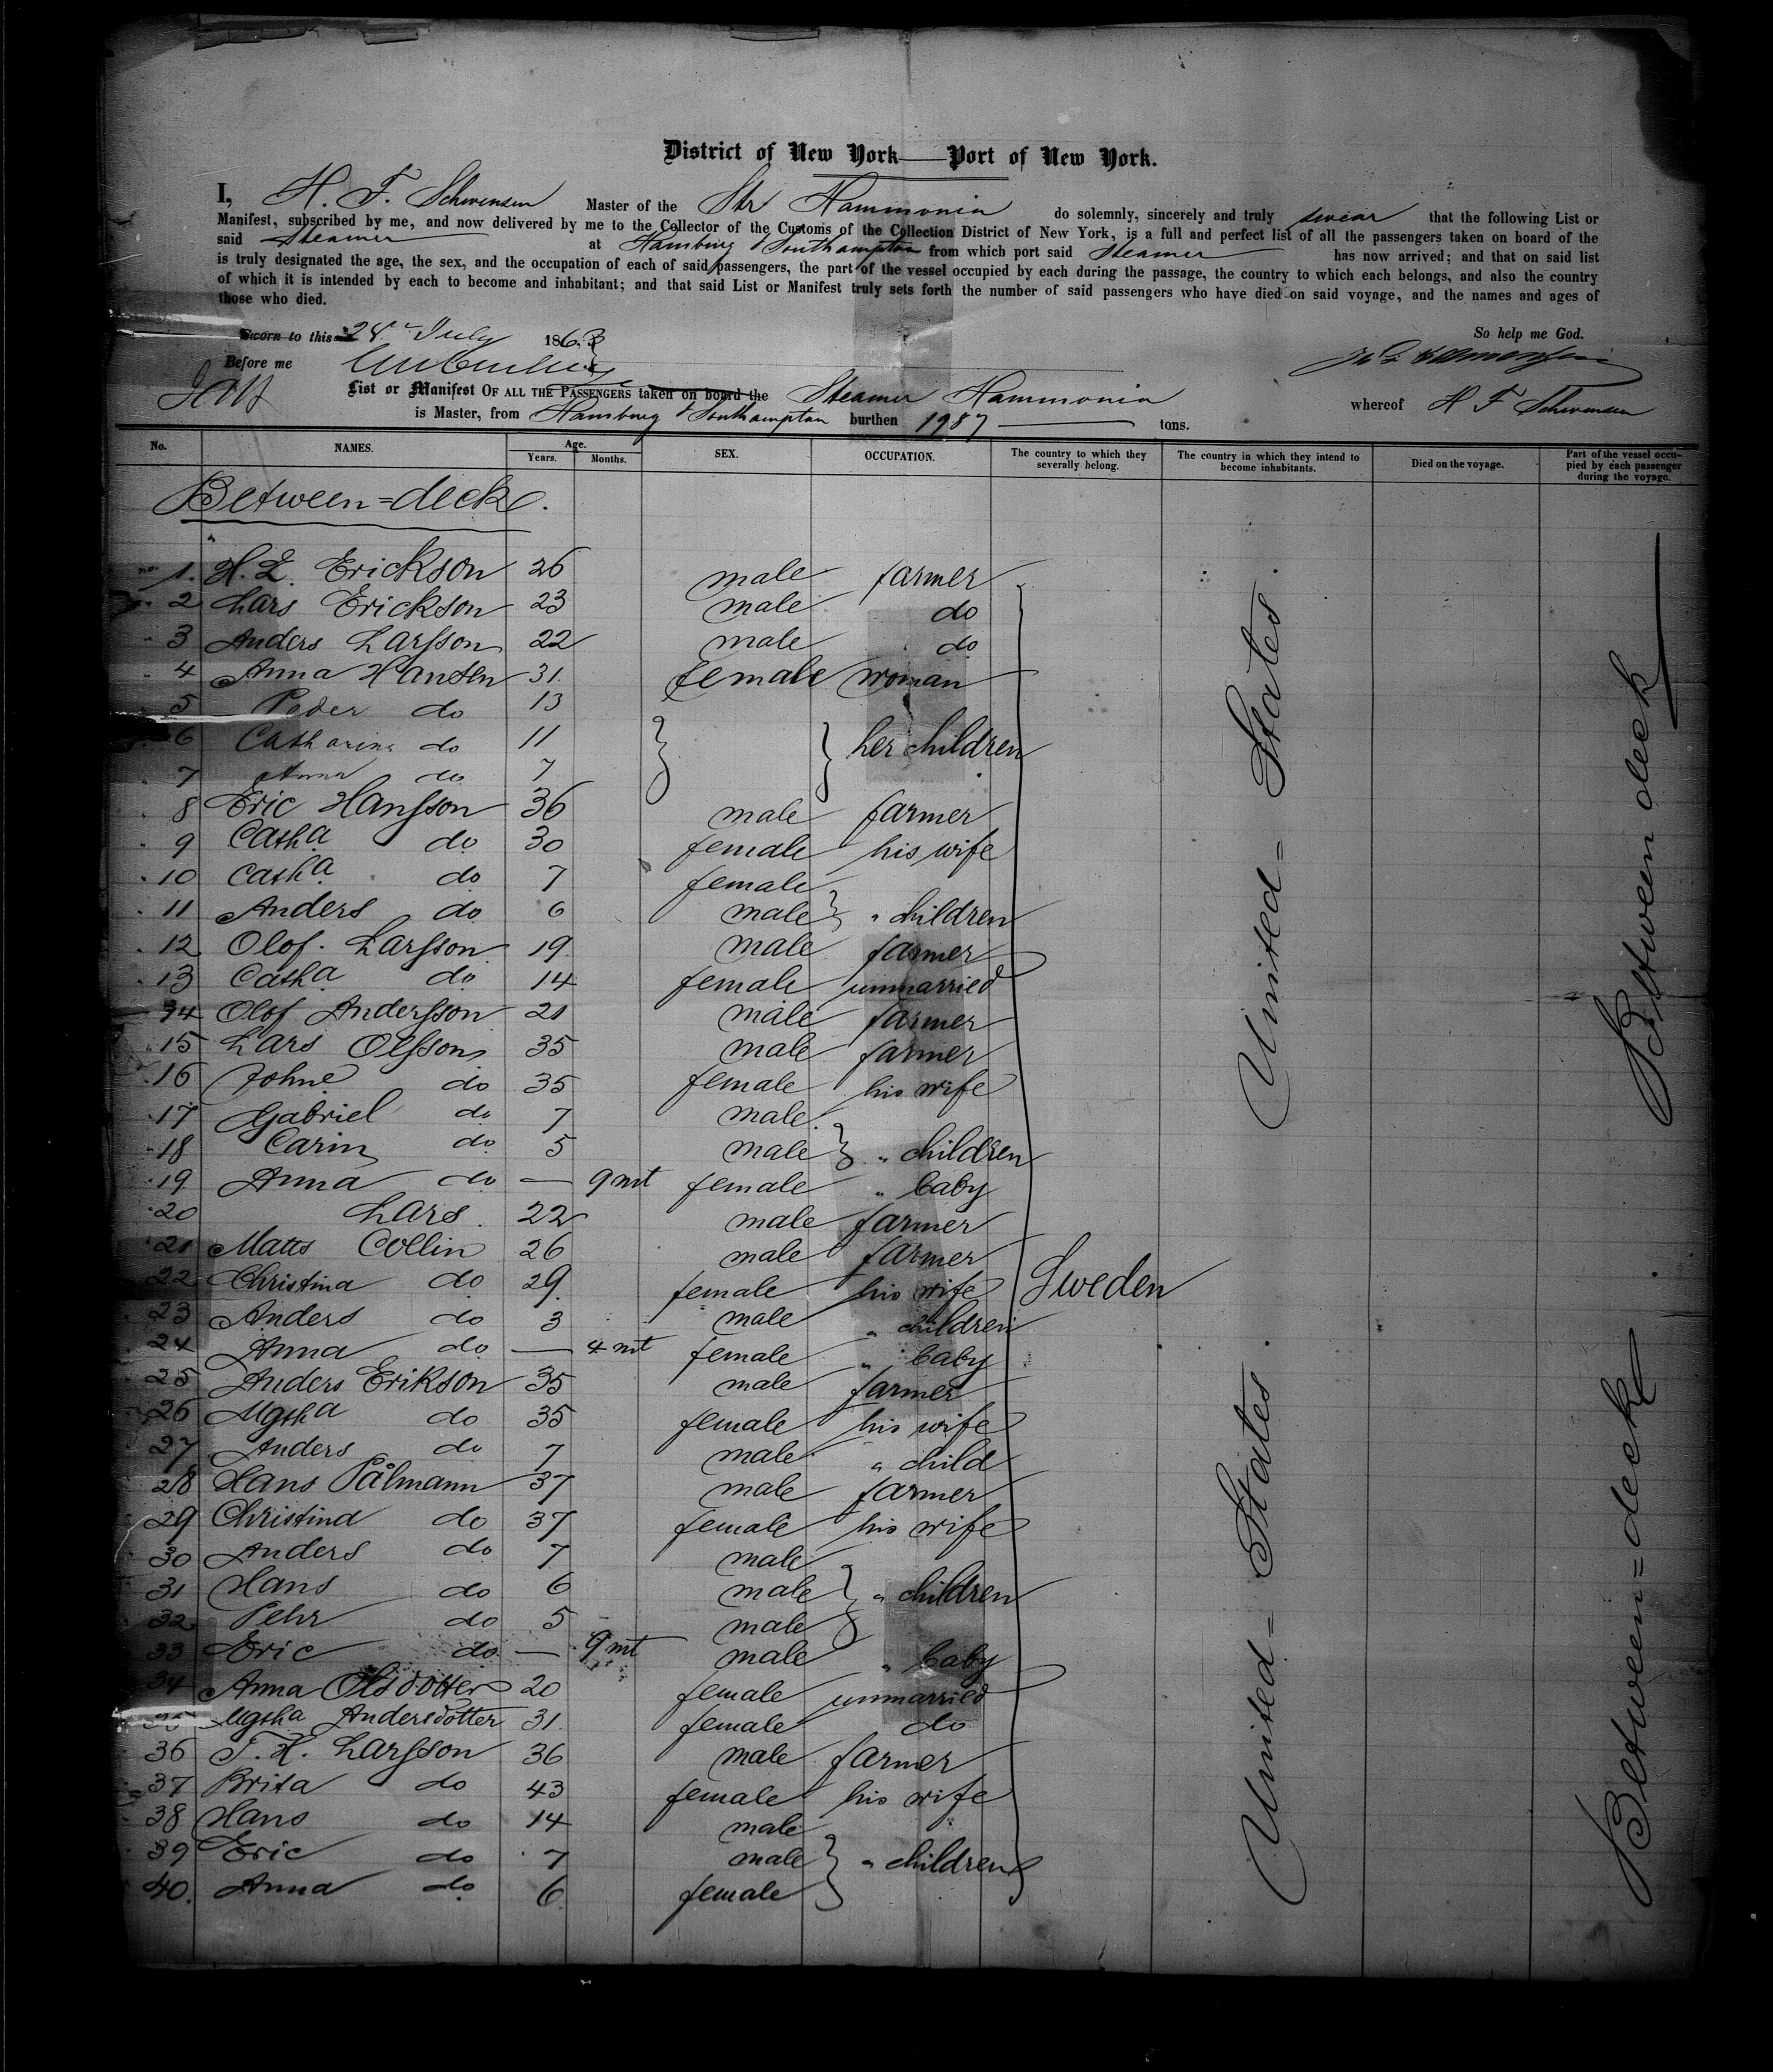 District of New York—Port of New York.
I, H. F. Schwensen Master of the Str Hammonia do solemnly, sincerely and truly swear that the following List or
Manifest, subscribed by me, and now delivered by me to the Collector of the Customs of the Collection District of New York, is a full and perfect list of all the passengers taken on board of the
said Steamer at Hamburg & Southampton from which port said Steamer has now arrived; and that on said list
is truly designated the age, the sex, and the occupation of each of said passengers, the part of the vessel occupied by each during the passage, the country to which each belongs, and also the country
of which it is intended by each to become and inhabitant; and that said List or Manifest truly sets forth the number of said passengers who have died on said voyage, and the names and ages of
those who died.
Sworn to this 28 July 1863
So help me God.
Before me
List or Manifest OF ALL THE PASSENGERS taken on board the Steamer Hammonia whereof H F Schwensen
is Master, from Hamburg & Southampton burthen 1987 tons.
No. NAMES. Age. Years. Months. SEX. OCCUPATION. The country to which they severally belong. The country in which they intend to become inhabitants. Died on the voyage. Part of the vessel occupied by each passenger during the voyage.
Between=deck.
no. 1. H. L. Erickson 26 male farmer
2 Lars Erickson 23 male do
3 Anders Larsson 22 male do
4 Anna Hansen 31. female woman
5 Peder do 13
6 Catharina do 11 her children
7 Anna do 7
8 Eric Hansson 36 male farmer
9 Catha do 30 female his wife
10 Catha do 7 female
11 Anders do 6 male " children
12 Olof. Larsson 19. male farmer
13 Catha do 14 female unmarried
14 Olof Andersson 21 male farmer
15 Lars Olsson 35 male farmer
16 Johne do 35 female his wife
17 Gabriel do 7 male
18 Carin do 5 male " children
19 Anna do — 9 mt female " baby
20 Lars. 22 male farmer
21 Matts Collin 26 male farmer
22 Christina do 29. female his wife Sweden
23 Anders do 3 male " children
24 Anna do — 4 mt female " baby
25 Anders Erikson 35 male farmer
26 Mgtha do 35 female his wife
27 Anders do 7 male " child
28 Hans Pålmann 37 male farmer
29 Christina do 37 female his wife
30 Anders do 7 male
31 Hans do 6 male " children
32 Pehr do 5 male
33 Eric do — 9 mt male " baby
34 Anna Olsdotter 20 female unmarried
35 Mgtha Andersdotter 31. female do
36 J. H. Larsson 36 male farmer
37 Brita do 43 female his wife
38 Hans do 14 male
39 Eric do 7 male " children
40. Anna do 6 female
United = States.
United = States.
Between deck
Between=deck